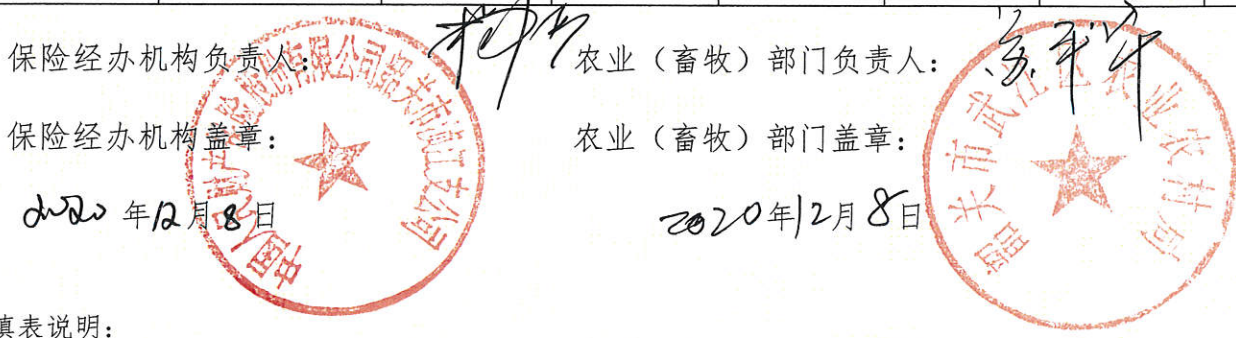 保险经办机构负责人:
农业（畜牧）部门负责人:
保险经办机构盖章:
农业（畜牧）部门盖章:
2020年12月8日
2020年12月8日
中国人民财产保险股份有限公司韶关市武江支公司
韶关市武江区农业农村局
填表说明: